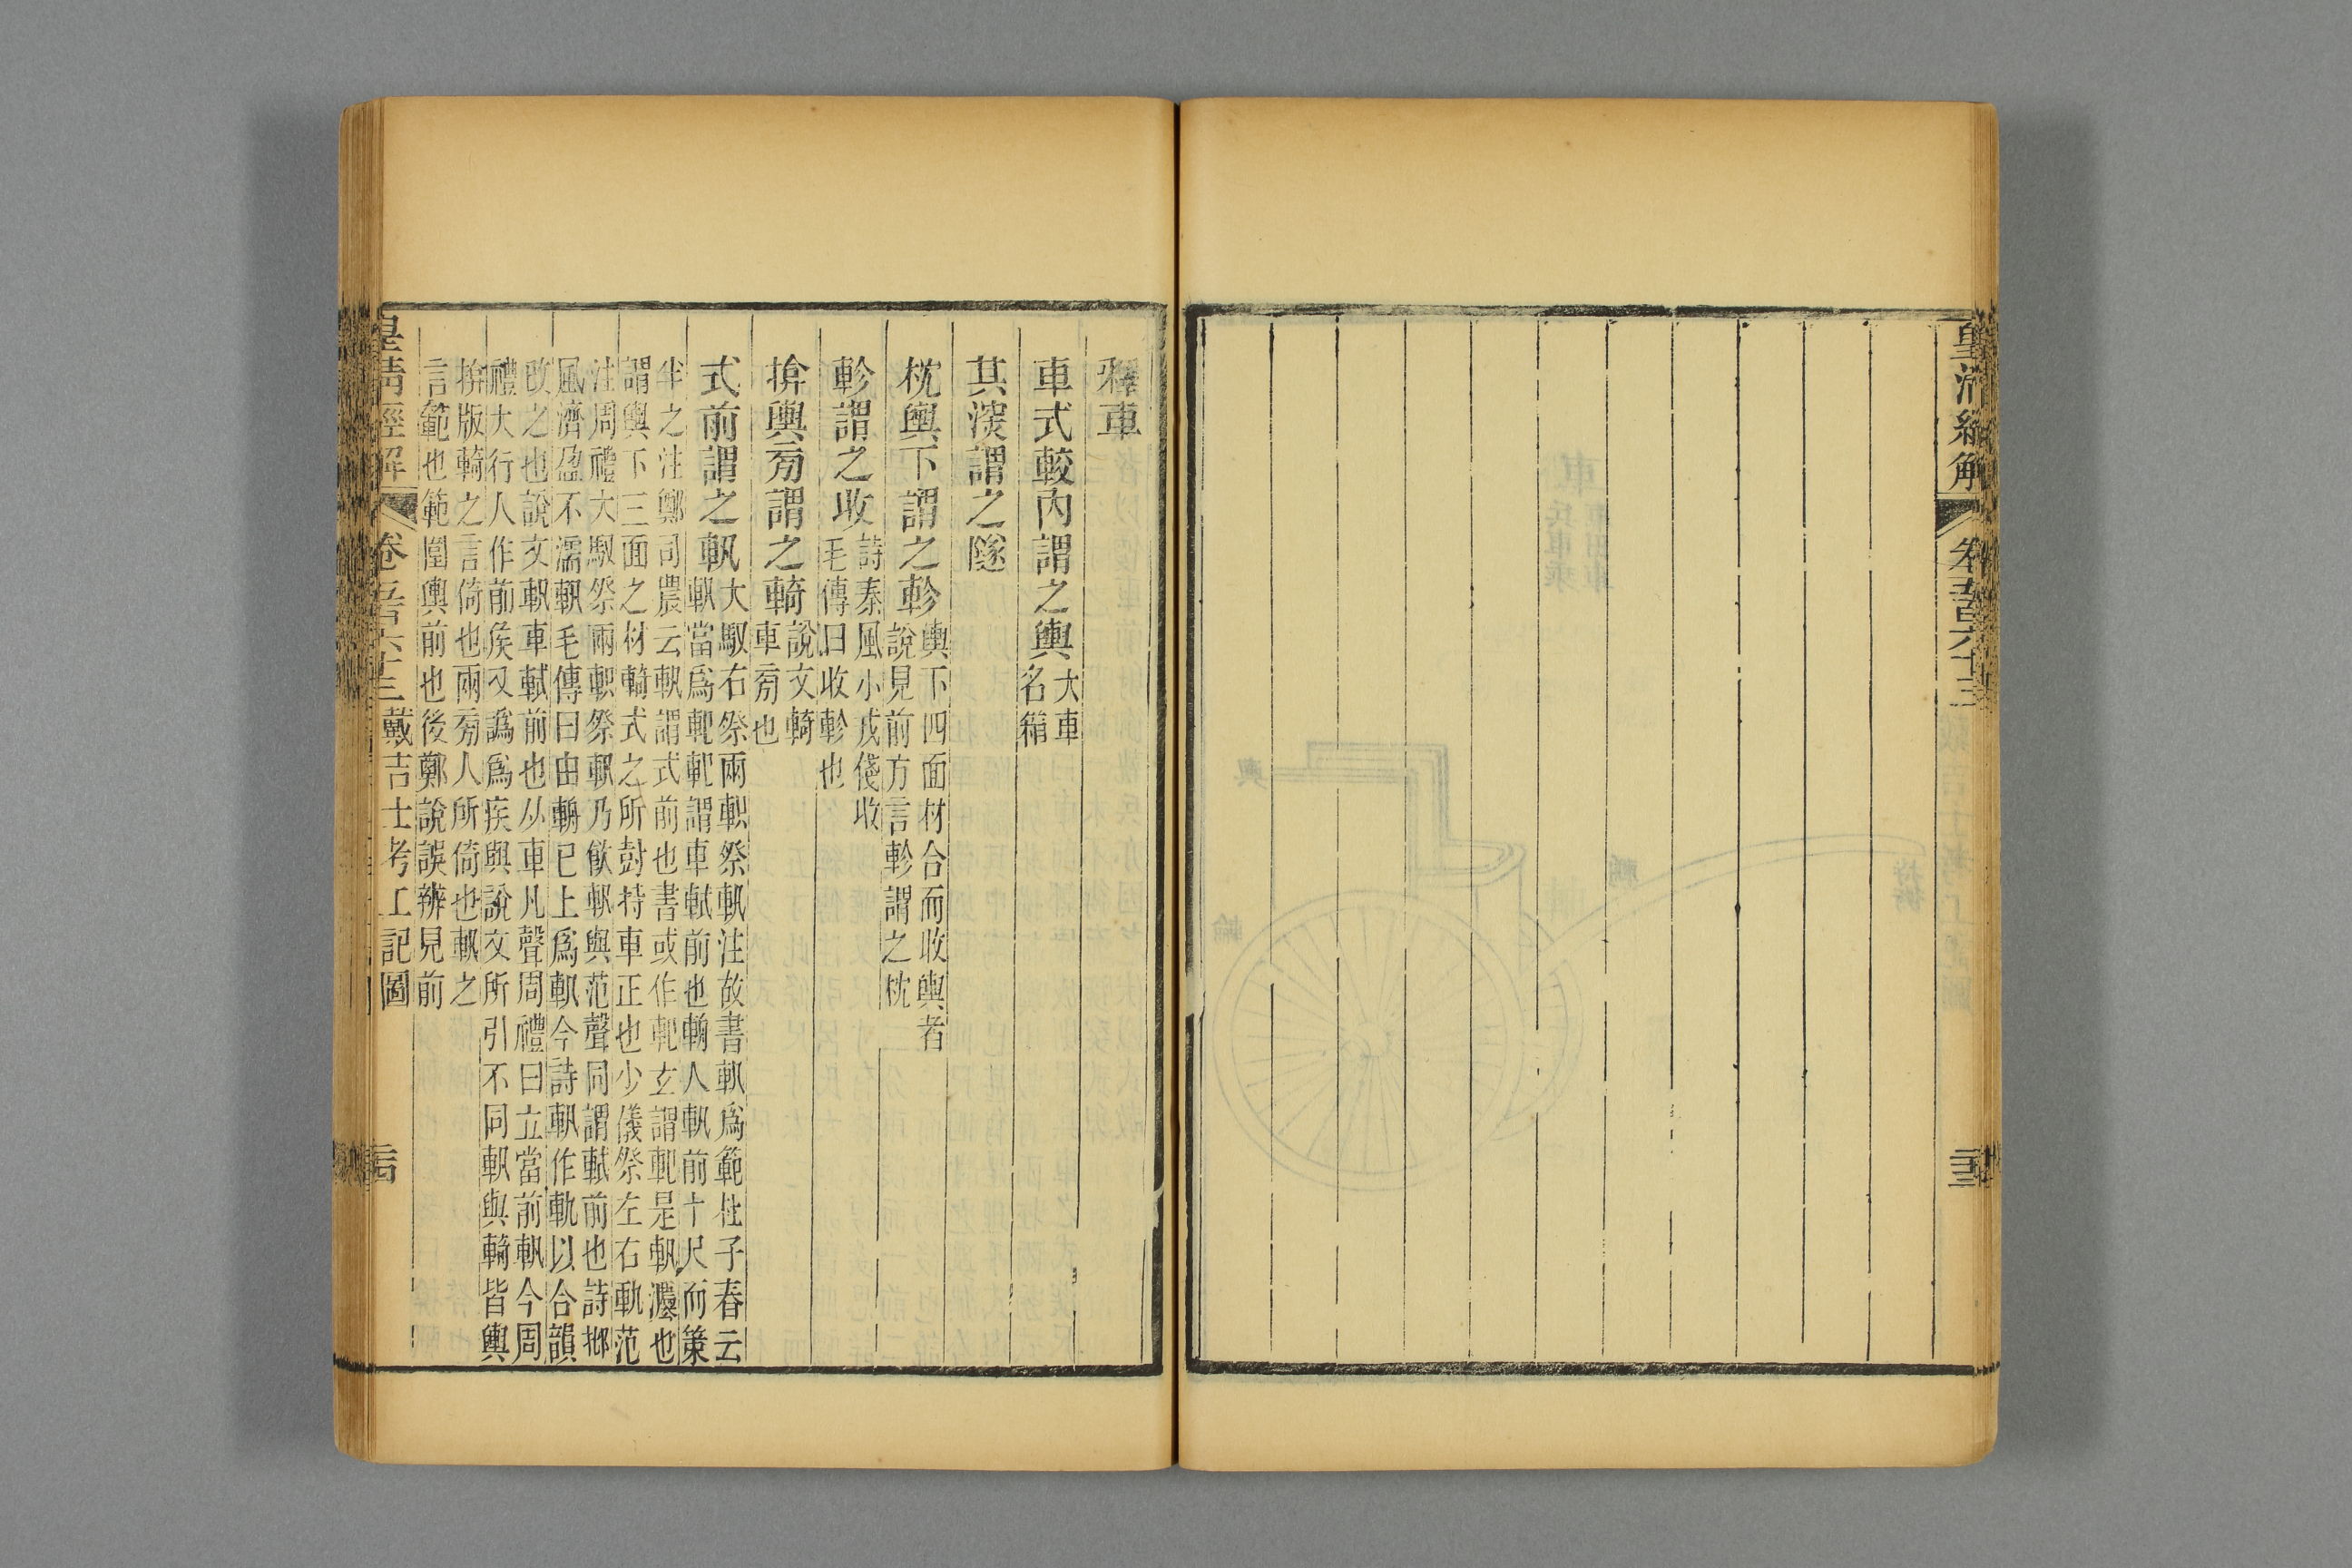 皇清經解
卷五百六十三
釋車
車式較內謂之輿大車
名箱
其深謂之隧
枕輿下謂之軫輿下四面材合而收輿者
說見前方言軫謂之枕
軫謂之收詩秦風小戎俴收
毛傳曰收軫也
揜輿旁謂之輢說文輢
車旁也
式前謂之軓大馭右祭兩軹祭軓注故書軓爲範杜子春云
軓當爲軋軋謂車軾前也輈人軓前十尺而策
半之注鄭司農云軓謂式前也書或作軋玄謂軋是軓灋也
謂輿下三面之材輢式之所尌持車正也少儀祭左右軌范
注周禮大馭祭兩軹祭軓乃飲軓與范聲同謂軾前也詩邶
風濟盈不濡軓毛傳曰由輈已上爲軓今詩軓作軌以合韻
改之也說文軓車軾前也从車凡聲周禮曰立當前軓今周
禮大行人作前矦又譌爲疾與說文所引不同軓與輢皆輿
揜版輢之言倚也兩旁人所倚也軓之
言範也範圍輿前也後鄭說誤辨見前
皇清經解
卷五百六十三 戴吉士考工記圖